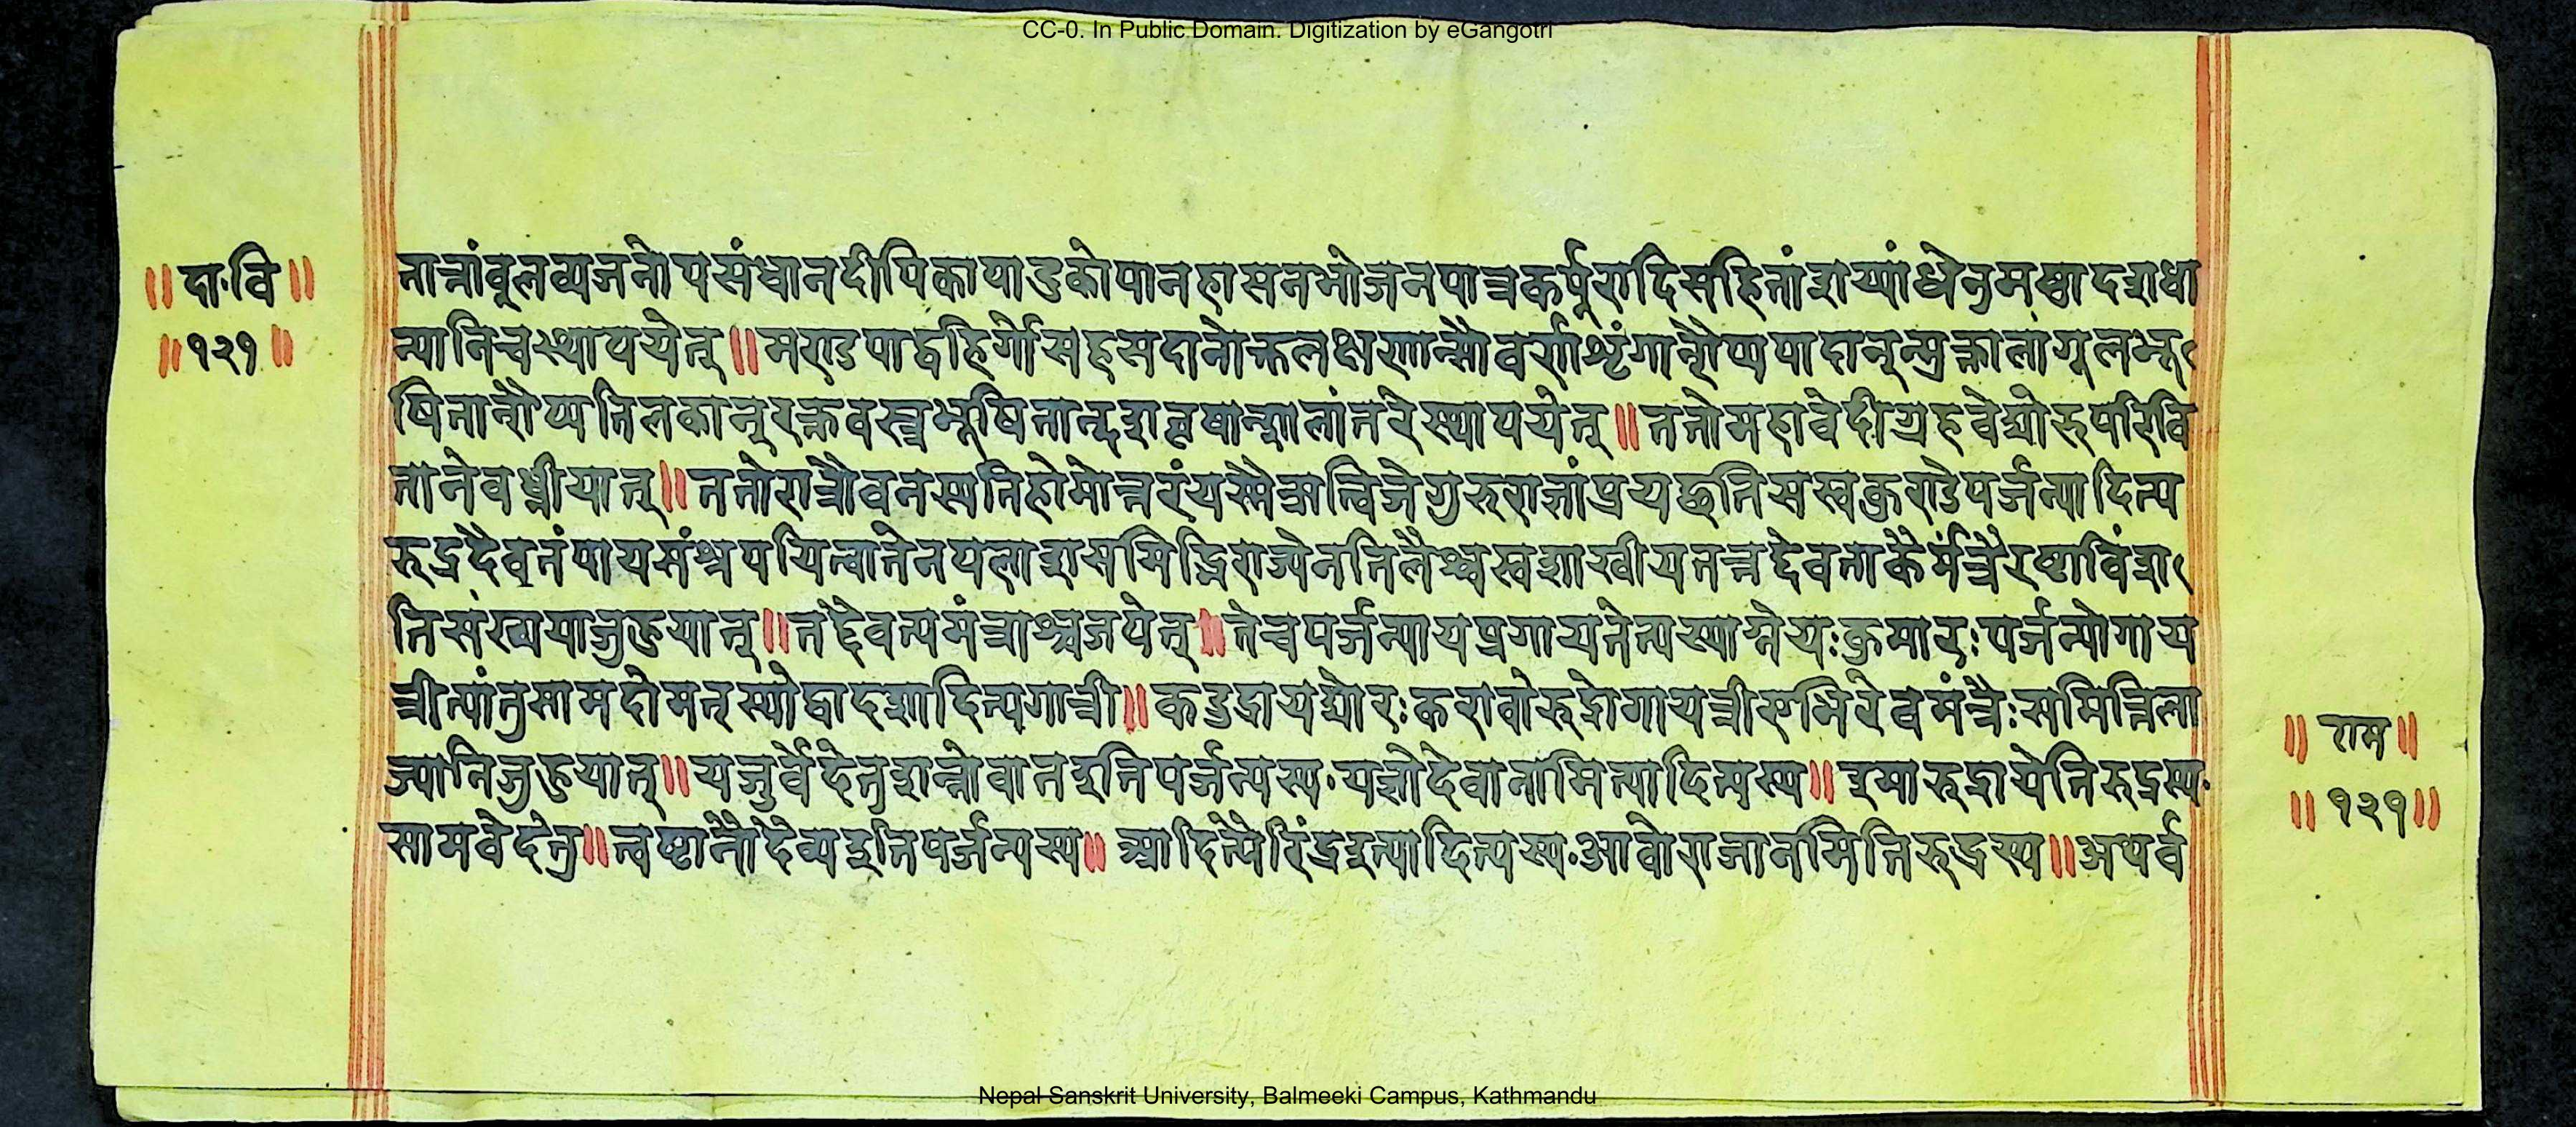 CC-0. In Public Domain. Digitization by eGangotri
॥दा·वि॥
॥१२१॥
तात्रांबूलव्यजनोपसंधानदीपिकापादुकोपानहासनभोजनपात्रकर्पूरादिसहितांशय्यांधेनुमष्टादशधा
न्यानिचस्थापयेत्॥मण्डपाद्बहिर्गोसहस्रदानोक्तलक्षणान्सौवर्णशृंगान्रौप्यपादान्मुक्तालांगूलभू
षितान्रौप्यतिलकान्रक्तवस्त्रभूषितान्दशवृषान्शालांतरेस्थापयेत्॥ततोमहावेदीग्रहवेद्योरुपरिवि
तानेबध्नीयात्॥ततोरात्रौवनस्पतिहोमोत्तरंयस्मैऋत्विजेगुरुराज्ञांप्रयछतिसस्वकुण्डेपर्जन्यादित्य
रुद्रदैवतंपायसंश्रपयित्वातेनपलाशसमिद्भिराज्येनतिलैश्चस्वशाखीयतत्तद्देवताकैर्मंत्रैरष्टाविंश
तिसंख्ययाजुहुयात्॥तद्देवत्यमंत्रांश्चजपेत्॥तेचपर्जन्यायप्रगायतेत्यस्याग्नेयःकुमारःपर्जन्योगाय
त्रीत्यांनुसामदोमत्स्योद्वादशादित्यगात्री॥कद्रुद्रायघोरःकण्वोरुद्रोगायत्रीएभिरेवमंत्रैःसमित्तिला
ज्यानिजुहुयात्॥यजुर्वेदेतुशन्नोवातइतिपर्जन्यस्य·यज्ञोदेवानामित्यादित्यस्य॥इमारुद्रायेतिरुद्रस्य·
सामवेदेतु॥त्वष्टानोदेव्यइतिपर्जन्यस्य॥आदित्यैरिंद्रइत्यादित्यस्य·आवोराजानमितिरुद्रस्य॥अथर्व
॥राम॥
॥१२१॥
Nepal Sanskrit University, Balmeeki Campus, Kathmandu